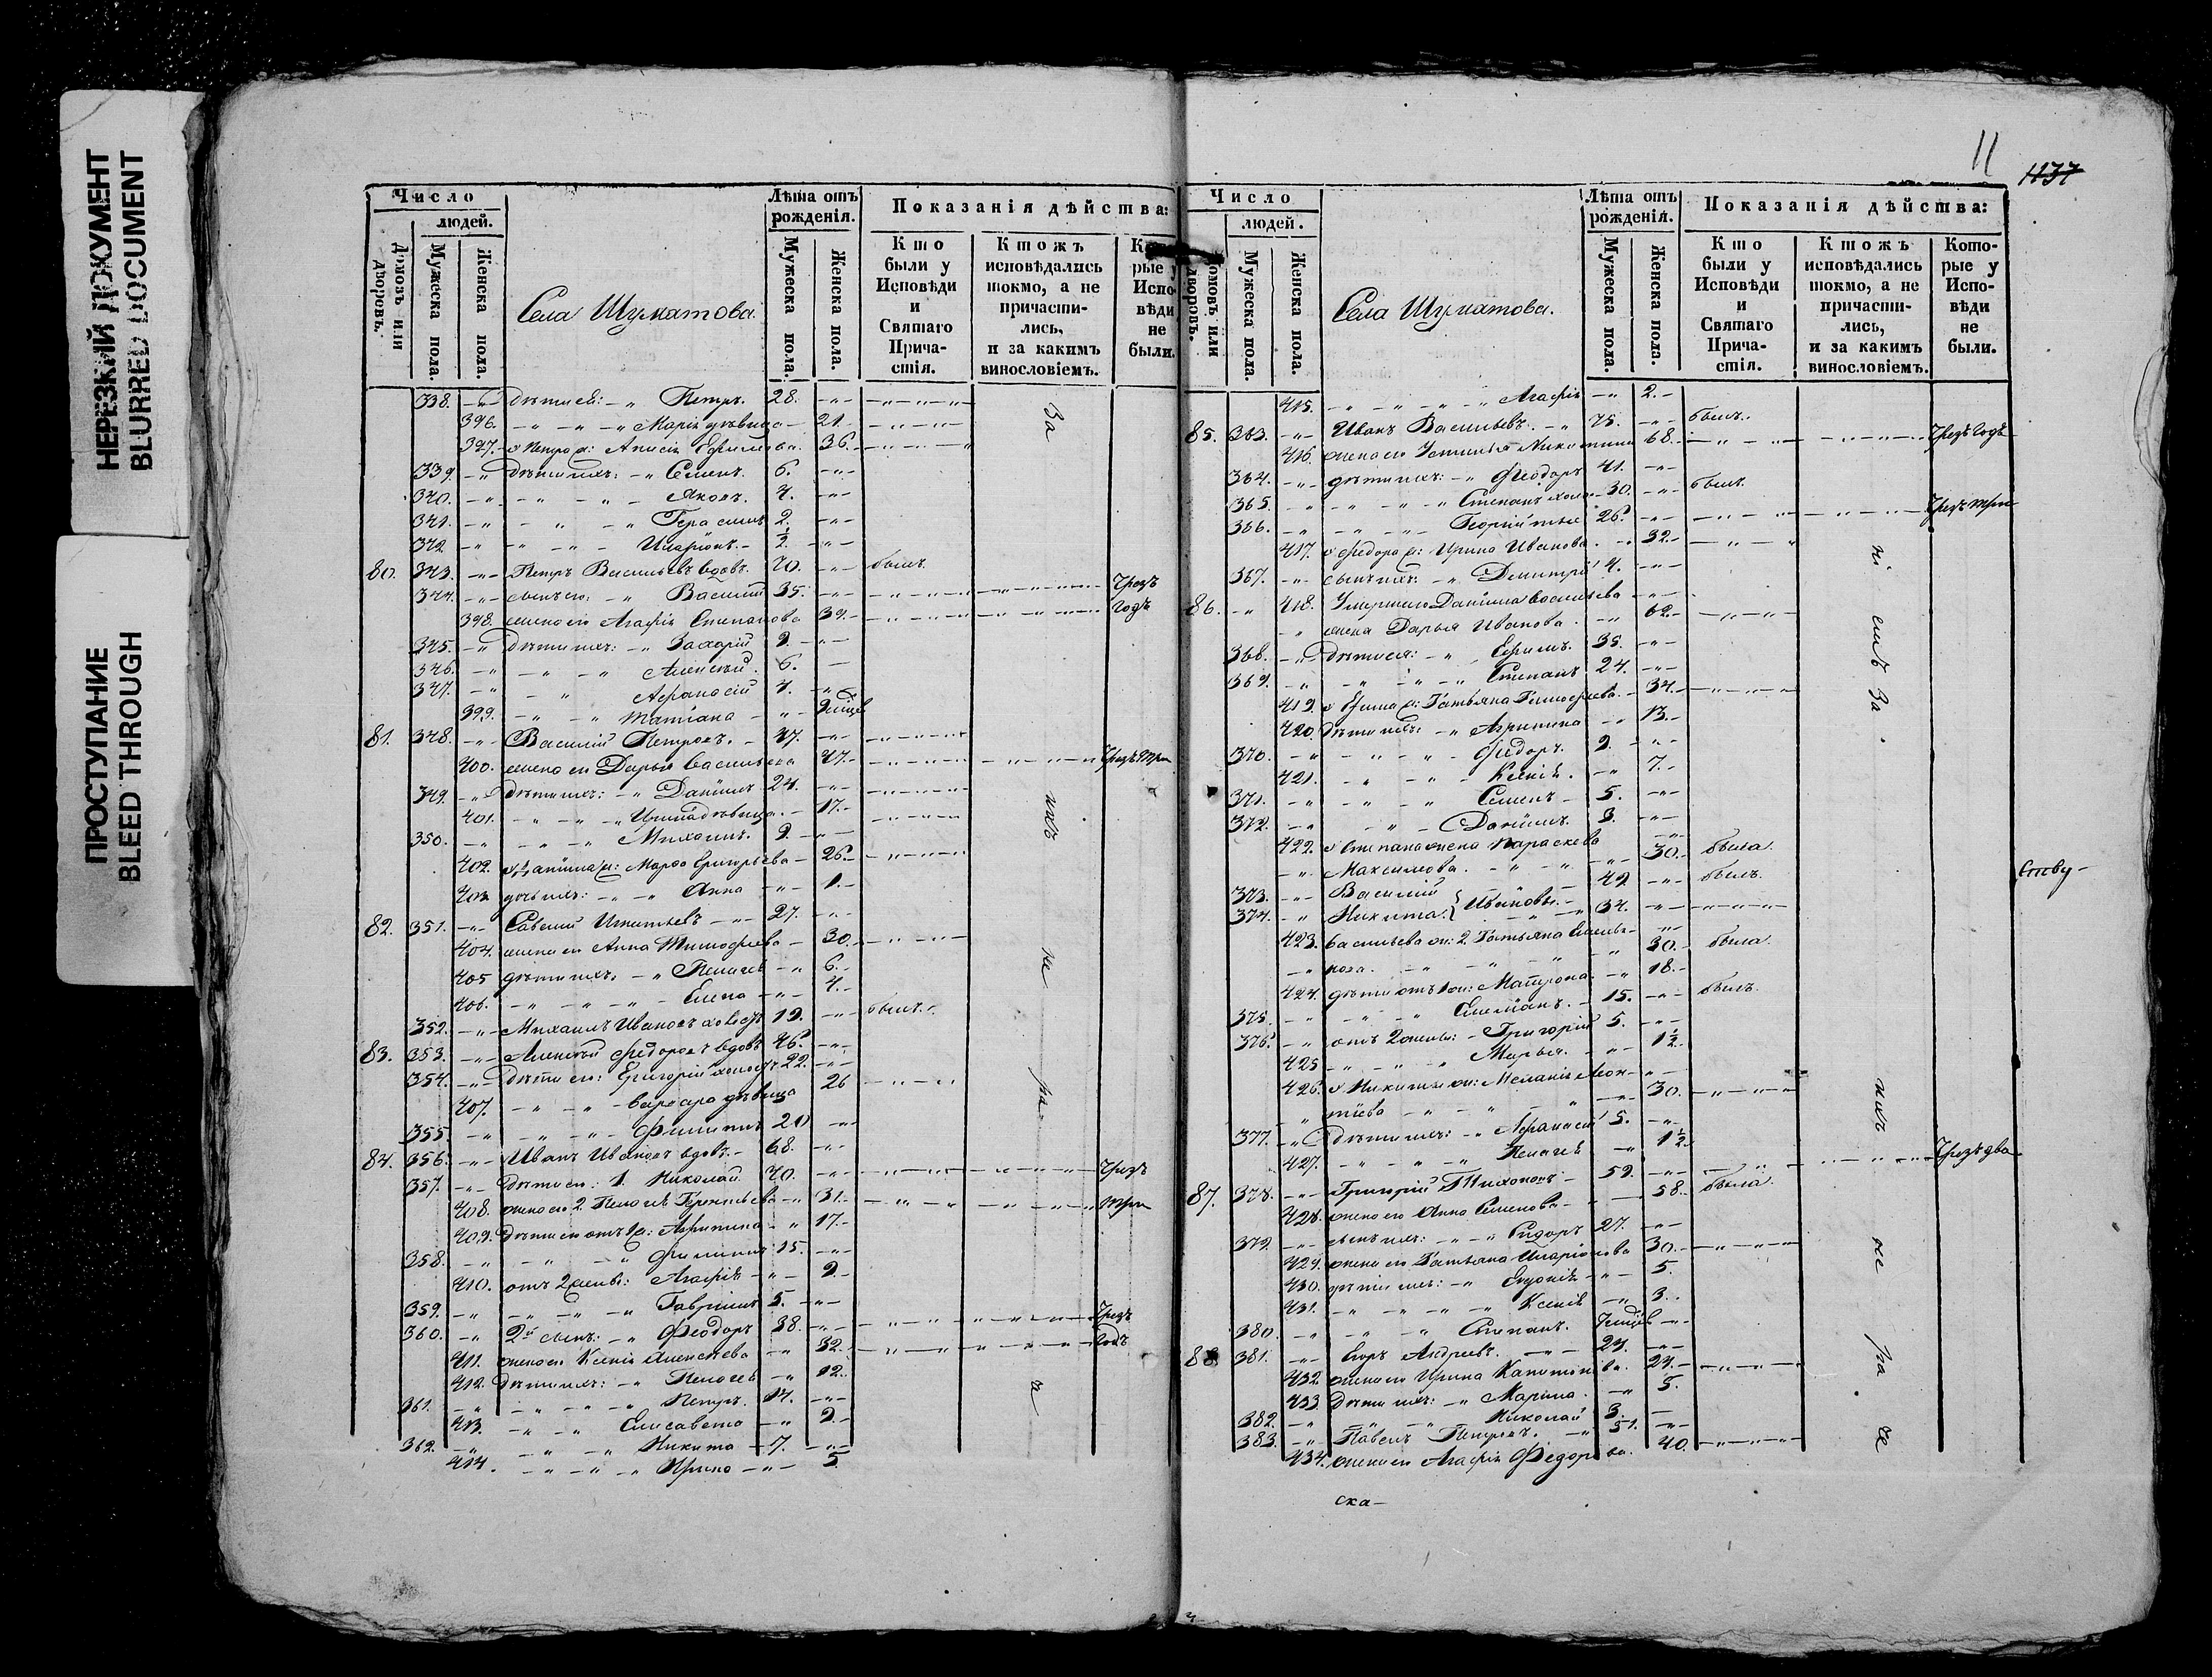 НЕРЕЗКИЙ ДОКУМЕНТ
BLURRED DOCUMENT
ПРОСТУПАНИЕ
BLEED THROUGH
Число
людей.
Домовъ или дворовъ.
Мужеска пола.
Женска пола.
Села Шуматова.
Лѣта отъ рожденія.
Мужеска пола.
Женска пола.
Показанія дѣйства:
Кто были у Исповѣди и Святаго Прича-стія.
Ктожъ исповѣдались токмо, а не причасти-лись, и за какимъ винословіемъ.
рые у Испо-вѣди не были.
338. дѣти ея: Петръ. 28.
396. Марія дѣвица 21.
397. у Петра ж: Анисія Ефимова. 36.
339. дѣти ихъ: Семенъ. 6.
340. Яковъ. 4.
341. Герасимъ 2.
342. Иларіонъ.
80. 343. Петръ Васильевъ вдовъ. 70. былъ
344. сынъ его: Василій 35. Чрезъ
398. жена его Агафія Степанова 39. годъ
345. дѣти ихъ: Захарій 9.
346. Алексѣй. 6.
347. Афанасій 4.
399. Татіана
81. 348. Василій Петровъ. 47.
400. жена ея Дарья Васильева 47. Чрезъ три
349. дѣти ихъ: Даніилъ 24.
401. дѣвица. 17.
350. Михаилъ. 9.
402. у Даніила ж: Марфа Григорьева 26.
403. дочь ихъ: Анна 1.
82. 351. Савелій Игнатьевъ 27.
404. жена ея Анна Тимофеева 30.
405 дѣти ихъ: Пелагея 6.
406. Елена 4.
352. Михаилъ Ивановъ холостъ 19. былъ.
83. 353. Алексѣй Федоровъ вдовъ 46.
354. дѣти его: Григорій холостъ 22.
407. Варвара дѣвица 26
355. Филиппъ 20
84. 356. Иванъ Ивановъ вдовъ. 68.
357. дѣти его: 1. Николай 40. Чрезъ
408. жена его 2. Пелагея Терентьева 31. три
409. дѣти его отъ 1 ж: Агрипина 17.
358. Филиппъ 15.
410. отъ 2 жены: Агафія 9.
359. Гавріилъ 5.
360. 2й сынъ: Феодоръ 38. Чрезъ
411. жена его Ксенія Алексѣева 32. годъ
412. дѣти ихъ: Пелагея 12.
361. Петръ. 14.
413. Елисавета 9.
362. Никита 7.
414. Ирина 5
За
нихъ
не
ра
че
11
1137
Число
людей.
Домовъ или дворовъ.
Мужеска пола.
Женска пола.
Села Шуматова.
Лѣта отъ рожденія.
Мужеска пола.
Женска пола.
Показанія дѣйства:
Кто были у Исповѣди и Святаго Прича-стія.
Ктожъ исповѣдались токмо, а не причасти-лись, и за какимъ винословіемъ.
Кото-рые у Испо-вѣди не были.
415. Агафія 2.
85. 363. Иванъ Васильевъ. 75. былъ.
416. жена его Устинья Никитина 68. Чрезъ годъ
364. дѣти ихъ: Феодоръ 41.
365. Степанъ холос 30. былъ.
366. Георгій 26. Чрезъ три
417. у Федора ж: Ирина Иванова. 32.
367. сынъ ихъ: Димитрій 4.
86. 418. Умершаго Даніила Васильева
жена Дарья Иванова. 62.
368. дѣти ея: Ефимъ. 35.
369. Степанъ. 24.
419. у Ефима ж: Татьяна Тимофеева. 34.
420. дѣти ихъ: Агрипина 13.
370. Федоръ. 9.
421. Ксенія. 7.
371. Семенъ 5.
372. Даніилъ. 3.
422. у Степана жена Параскева
Максимова. 30. была.
373. Василій 42 былъ.
374. Никита. } Ивановы. 34.
423. Васильева ж: 2. Татьяна
30. была.
424. дѣти отъ 1 ж: Матрона. 18.
375. Емеліанъ. 15. былъ.
376. отъ 2 жены: Григорій 5.
425 Марья. 1½
426. у Никиты ж: Меланія Леон-
тіева 30.
377. дѣти ихъ: Афанасій 5.
427. Пелагея 1½
87. 378. Григорій Тихоновъ 59. Чрезъ два
428. жена его Анна Семенова 58. была.
379. сынъ ихъ: Сидоръ 27.
429. жена его Татьяна Иларіонова 30.
430. дѣти ихъ: Евдокія 5.
431. Ксенія 3.
380. Степанъ.
88. 381. Егоръ Андреевъ. 24.
432. жена его Ирина Капитонова. 24.
433. дѣти ихъ: Марина. 5.
382. Николай 3.
383. Павелъ Петровъ. 51.
434. жена его Агафія Федорова. 40.
ска-
За
нихъ
не
ра
че